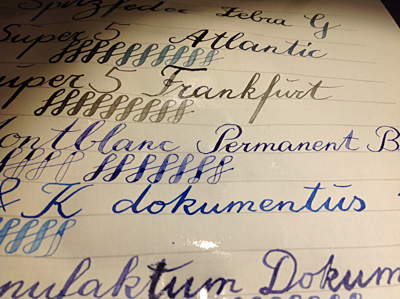 Spitzfeder Zebra G
Super 5 Atlantic
uper 5 Frankfurt
ontblanc Permanent B
& K dokumentus
nufaktum Dokum